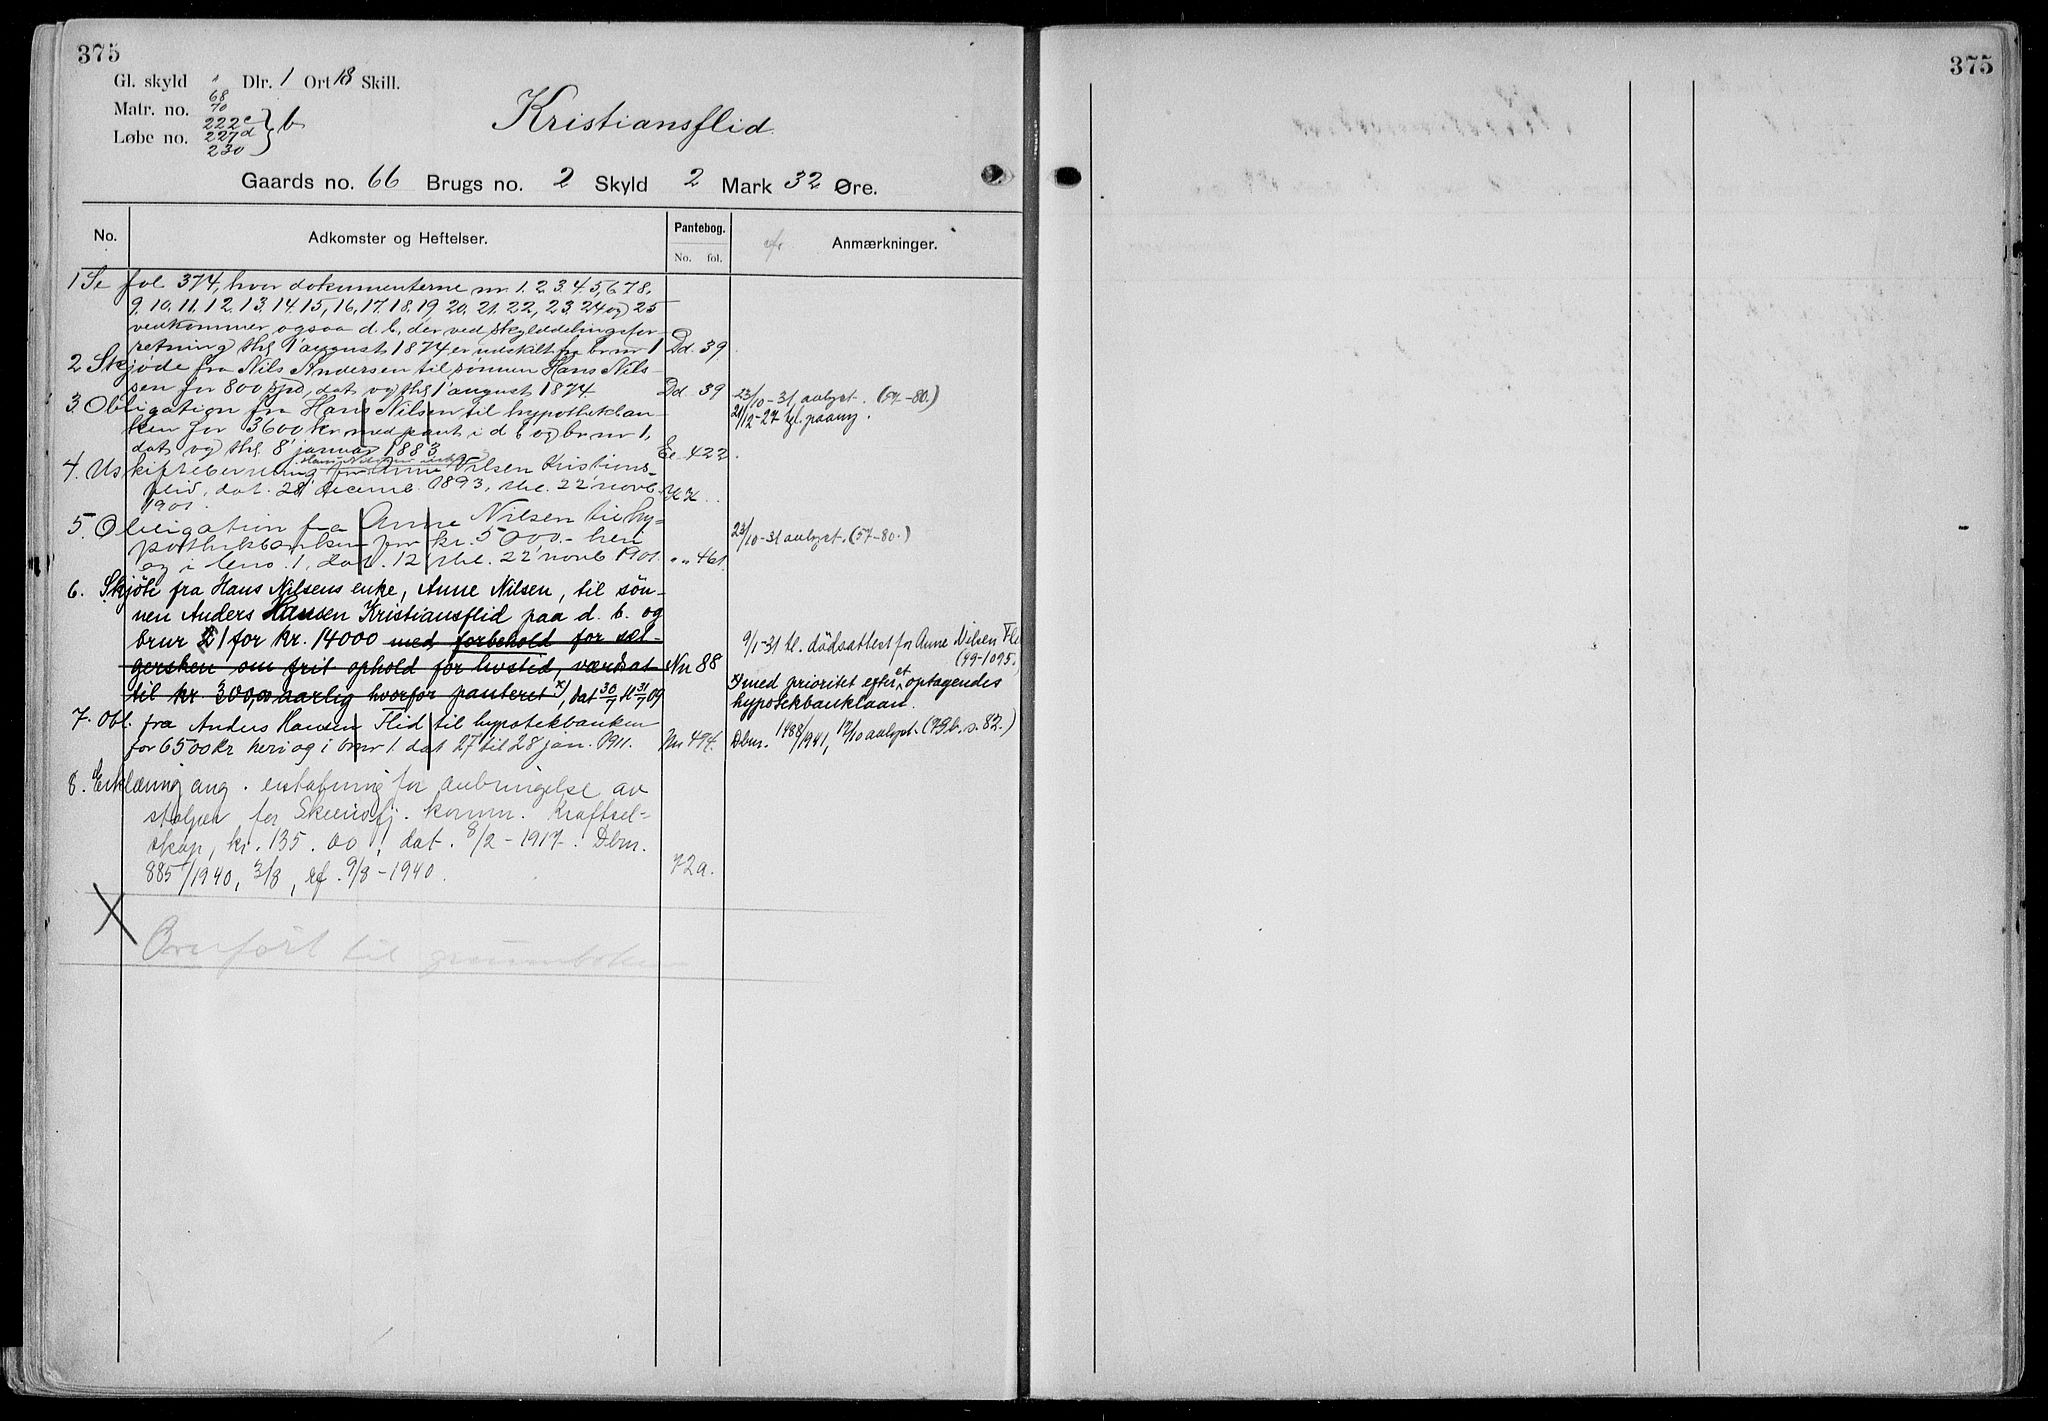 375
Gl. skyld " Dlr. 1 Ort 18 Skill.
Matr. no. 68 70
Løbe no. 222c 227d 230 } b
Kristiansflid
Gaards no. 66 Brugs no. 2 Skyld 2 Mark 32 Øre.
No. Adkomster og Heftelser. Pantebog. No. fol. Anmærkninger.
1 Se fol 374, hvor dokumenterne nr 1. 2. 3. 4. 5, 6. 7. 8.
9. 10. 11. 12. 13. 14. 15, 16, 17. 18. 19 20. 21. 22, 23. 24 og 25
vedkommer ogsaa d. b, der ved skylddelingsfor-
retning thl 1' august 1874 er udskilt fra br nr 1 Dd. 39
2 Skjøde fra Nils Andersen til sønnen Hans Nils-
sen for 800 spd, dat og thl 1' august 1874. Dd 39
3. Obligation fra Hans Nilsen til hypothekban-
ken for 3600 kr med pant i d b og br nr 1,
dat og thl 8' januar 1883 Ee 422
23/10-31, avlyst. (57-80.)
21/12-27 tgl. paany.
4. Uskifteberetning for Anne Nilsen Kristians-
flid, dat. 28' decemb. 1893, thl. 22' novb.
1901.
5. Obligation fra Anne Nilsen til hy-
pothekbanken for kr. 5000.- heri
og i bno. 1, dat. 12' thl. 22' novb 1901. " " 461.
23/10-31 avlyst. (57-80.)
6. Skjöte fra Hans Nilsens enke, Anne Nilsen, til sön-
nen Anders Hansen Kristiansflid paa d. b. og
brnr 1 for kr. 14000 med forbehold for sæl-
gersken om frit ophold for livstid, værdsat
til kr 300,00 aarlig hvorfor panteret x), dat 30/7 tl 31/7 09 Nn 88
9/1-31 tl. dödsattest for Anne Nilsen Fli
(49-1095.
x) med prioritet efter et optagendes
hypotekbanklaan.
7. Obl. fra Anders Hansen Flid til hypotekbanken
for 6500 kr heri og i bnr 1. dat 27 til 28 jan. 1911. Nn 494.
Dbnr. 1488/1941, 17/10 avlyst. (79b. s. 82.)
8. Erklæring ang. erstatning for anbringelse av
stolper for Skiensfj. komm. Kraftsel-
skap, kr. 135.00, dat. 8/2-1917. Dbnr.
885/1940, 3/8, ref. 9/8-1940. 72a.
X
Overfört til grunnboken
375